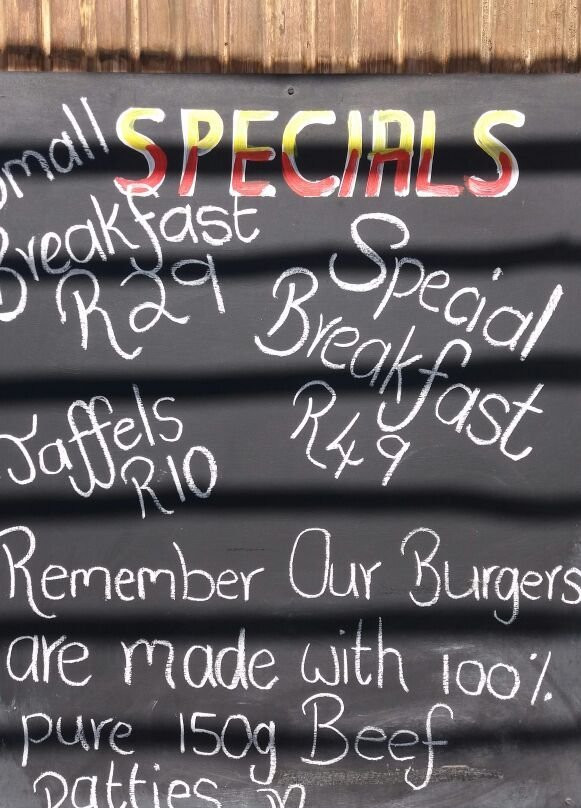 SPECIALS
Small
Breakfast
R29
Special
Breakfast
R49
Jaffels
R10
Remember Our Burgers
are made with 100%
pure 150g Beef
Patties